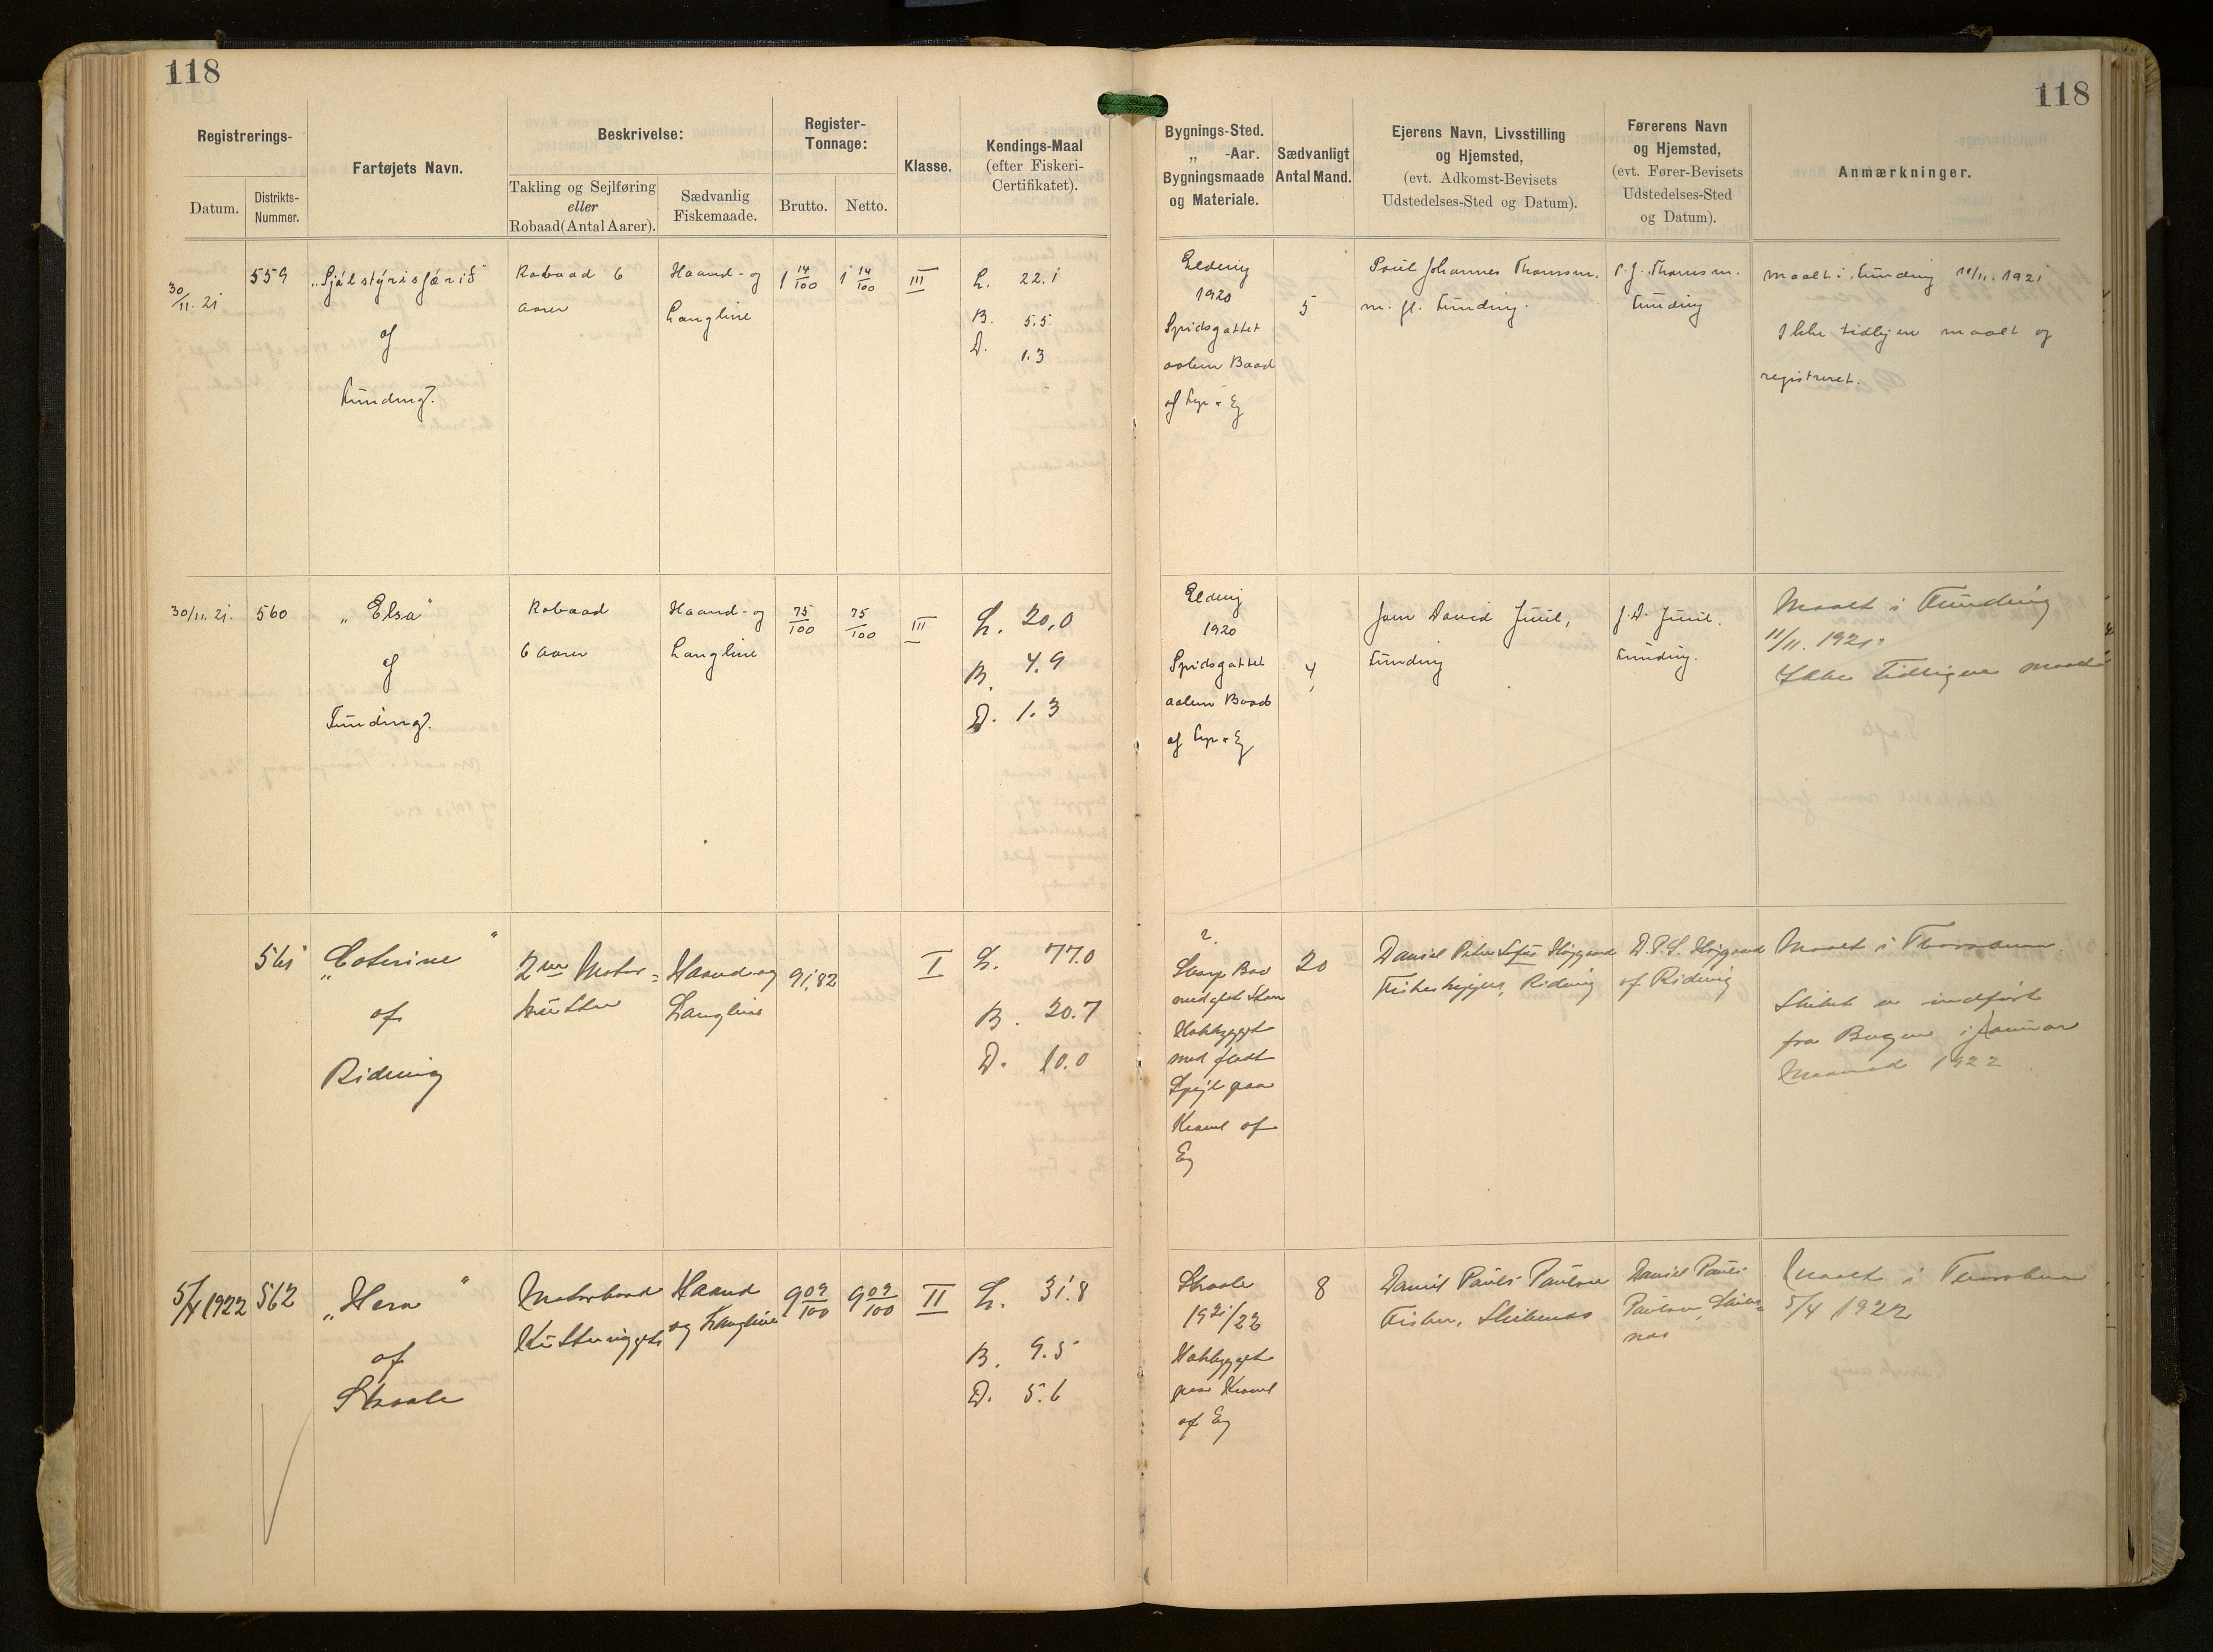 118
118
Registrerings-
Datum.
Distrikts-
Nummer.
Fartøjets Navn.
Beskrivelse:
Takling og Sejlføring
eller
Robaad (Antal Aarer).
Sædvanlig
Fiskemaade.
Register-
Tonnage:
Brutto.
Netto.
Klasse.
Kendings-Maal
(efter Fiskeri-
Certifikatet).
Bygnings-Sted.
„ -Aar.
Bygningsmaade
og Materiale.
Sædvanligt
Antal Mand.
Ejerens Navn, Livsstilling
og Hjemsted,
(evt. Adkomst-Bevisets
Udstedelses-Sted og Datum).
Førerens Navn
og Hjemsted,
(evt. Fører-Bevisets
Udstedelses-Sted
og Datum).
Anmærkninger.
30/11. 21
559
„Sjálstýrisfærið“
af
Funding.
Robaad 6
aarer
Haand- og
Langline
1 14/100
1 14/100
III
L. 22.1
B. 5.5
D. 1.3
Eldevig
1920
Spidsgattet
aaben Baad
af Fyr & Eg
5
Poul Johannes Thomsen,
m. fl. Funding.
P. J. Thomsen.
Funding
Maalt i Funding 11/11. 1921
Ikke tidligere maalt og
registreret.
30/11. 21.
560
„Elsa“
af
Funding.
Robaad
6 aarer
Haand- og
Langline
75/100
75/100
III
L. 20,0
B. 4.9
D. 1.3
Eldevig
1920
Spidsgattet
aaben Baad
af Fyr & Eg
4
Joen David Juul,
Funding
J. D. Juul.
Funding.
Maalt i Funding
11/11. 1921.
Ikke tidligere maalt
561
„Caterine“
af
Ridevig
2 m Motor-
kutter
Haand og
Langline
91,82
I
L. 77.0
B. 20.7
D. 10.0
?
Skarp Bov
med ret Stævn
Klokbygget
med fladt
Spejl paa
Kravel af
Eg
20
Daniel Peter Sofus Højgaard
Fiskeskipper, Ridevig
D. P. S. Højgaard
af Ridevig
Maalt i Thorshavn.
Skibet er indført
fra Bergen i Januar
Maaned 1922
5/4 1922
562
„Hera“
af
Skaale
Motorbaad
Kutterrigget
Haand
og Langline
9 09/100
9 09/100
II
L. 31.8
B. 9.5
D. 5.6
Skaale
1921/22
Klokbygget
paa Kravel
af Eg
8
Daniel Paul Paulsen
Fisker, Skibenæs
Daniel Paul
Paulsen, Skibe-
næs
Maalt i Thorshavn
5/4 1922